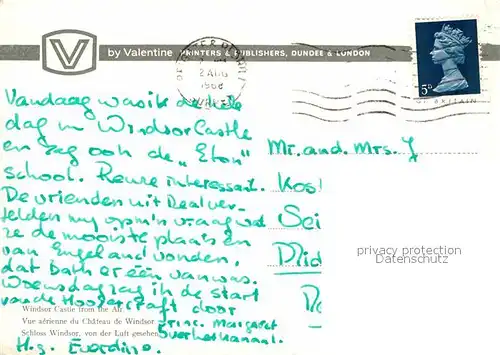 by Valentine PRINTERS & PUBLISHERS, DUNDEE & LONDON
2 AUG
1968
5D
Vandaag was ik de hele
dag in Windsor Castle
en zag ook de „Eton"
school. Reuze interessant.
De vrienden uit Deal ver-
telden my op m'n vraag wat
ze de mooiste plaats en
van Engeland vonden,
dat bath er één van was.
Woensdag zag ik de start
van de Hoovercraft door
Princ. Margaret
over het kanaal.
H.g. Everdine.
Mr. and. Mrs. J
Kos
Sei
Mid
Windsor Castle from the Air
Vue aérienne du Château de Windsor
Schloss Windsor, von der Luft gesehen
privacy protection
Datenschutz